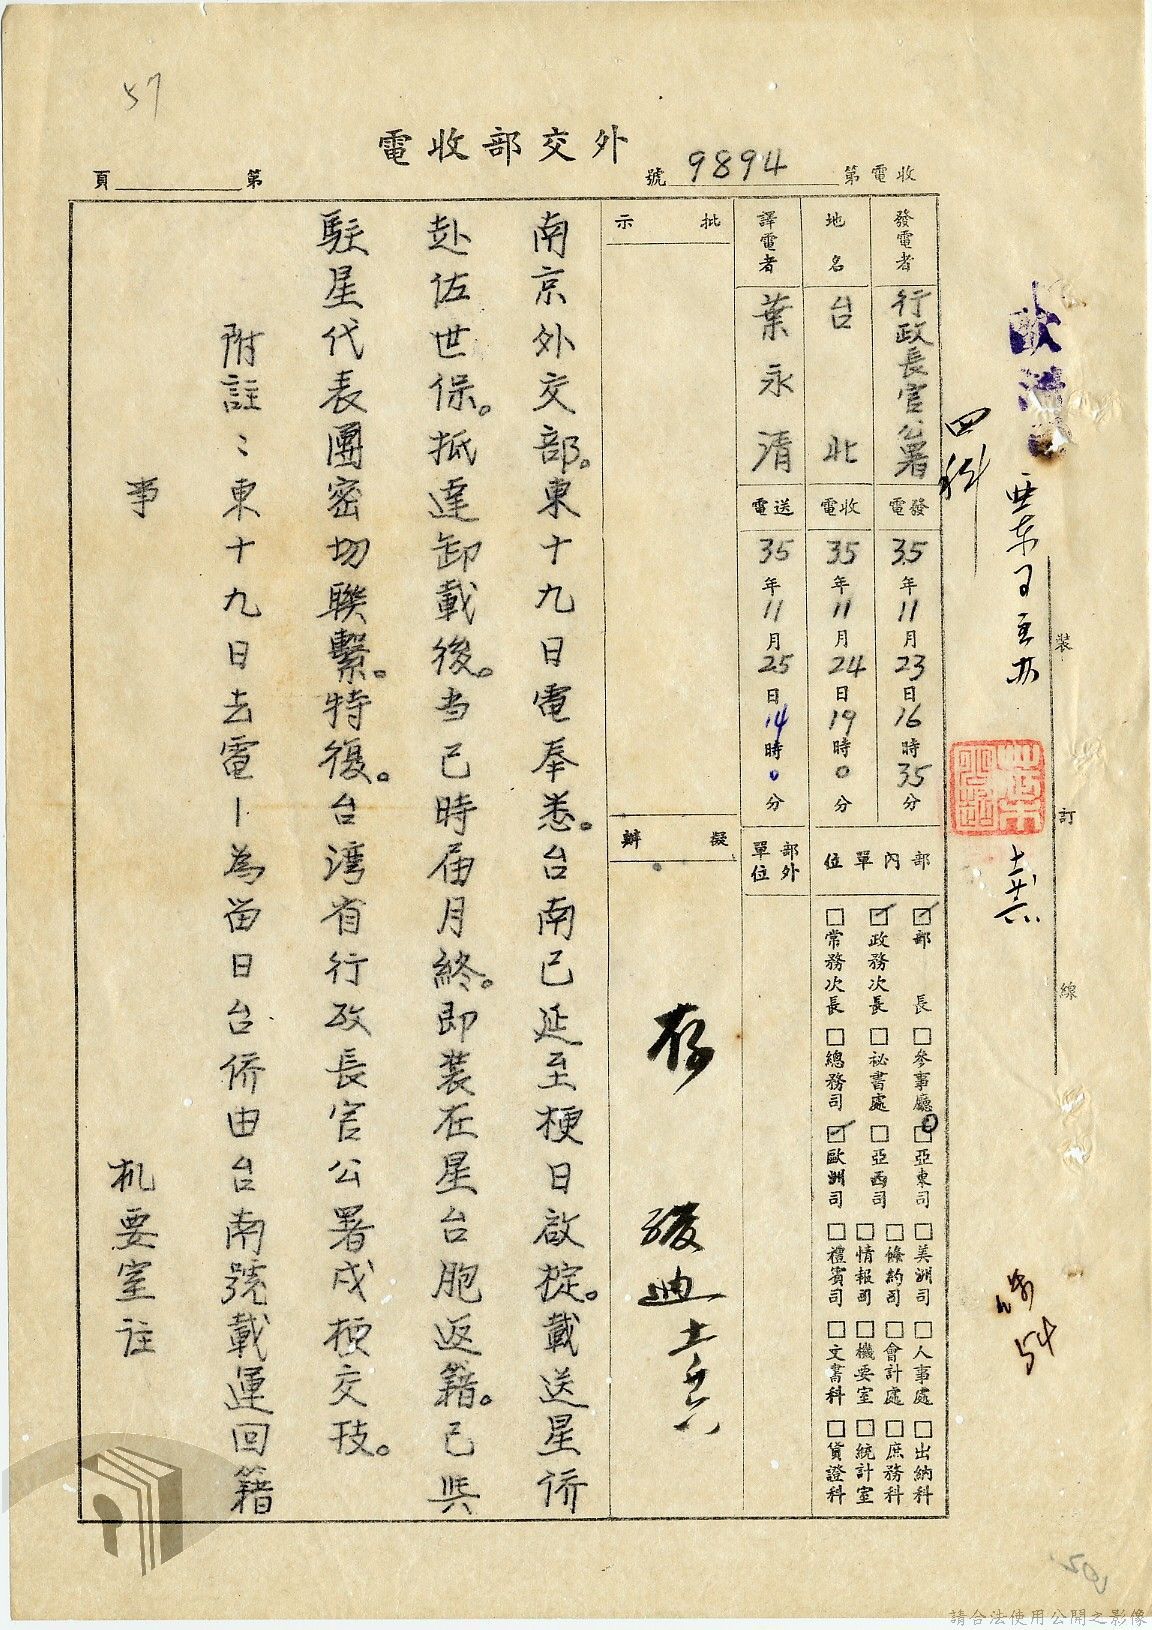 57
外交部收電
收電第9894號
第 頁
發電者 行政長官公署
發電 35年11月23日16時35分
地名 台北
收電 35年11月24日19時0分
譯電者 葉永清
送電 35年11月25日14時0分
部內單位
部外單位
☑部長 □參事廳 □亞東司 □美洲司 □人事處 □出納科
□條約司 □會計處 □庶務科
☑政務次長 □祕書處 □亞西司 □情報司 □機要室 □統計室
□常務次長 □總務司 ☑歐洲司 □禮賓司 □文書科 □貨證科
批示
擬辦
存
南京外交部。東十九日電奉悉。台南已延至梗日啟椗。載送星侨
赴佐世保。抵達卸載後。当已時届月終。即装在星台胞返籍。已與
駐星代表團密切聯繫。特復。台湾省行政長官公署戌梗交技。
附註：東十九日去電—為留日台侨由台南號載運回籍
事
机要室註
四科
亞東司主办
裝
訂
線
54
請合法使用公開之影像